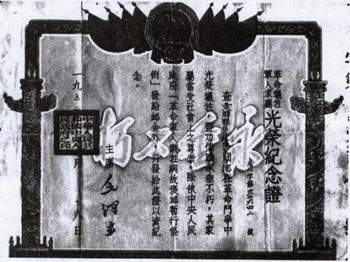 革命犧牲
軍人家屬
光榮紀念證
號
同志在革命鬥爭中
光榮犧牲豐功偉績永垂不朽其家
屬當受社會上之尊崇除依中央人民
政府「革命軍人犧牲病故褒恤暫行條
例」發給卹金外並發給此證以資紀
念。
主席 毛澤東
一九五
月
八日
永垂不朽